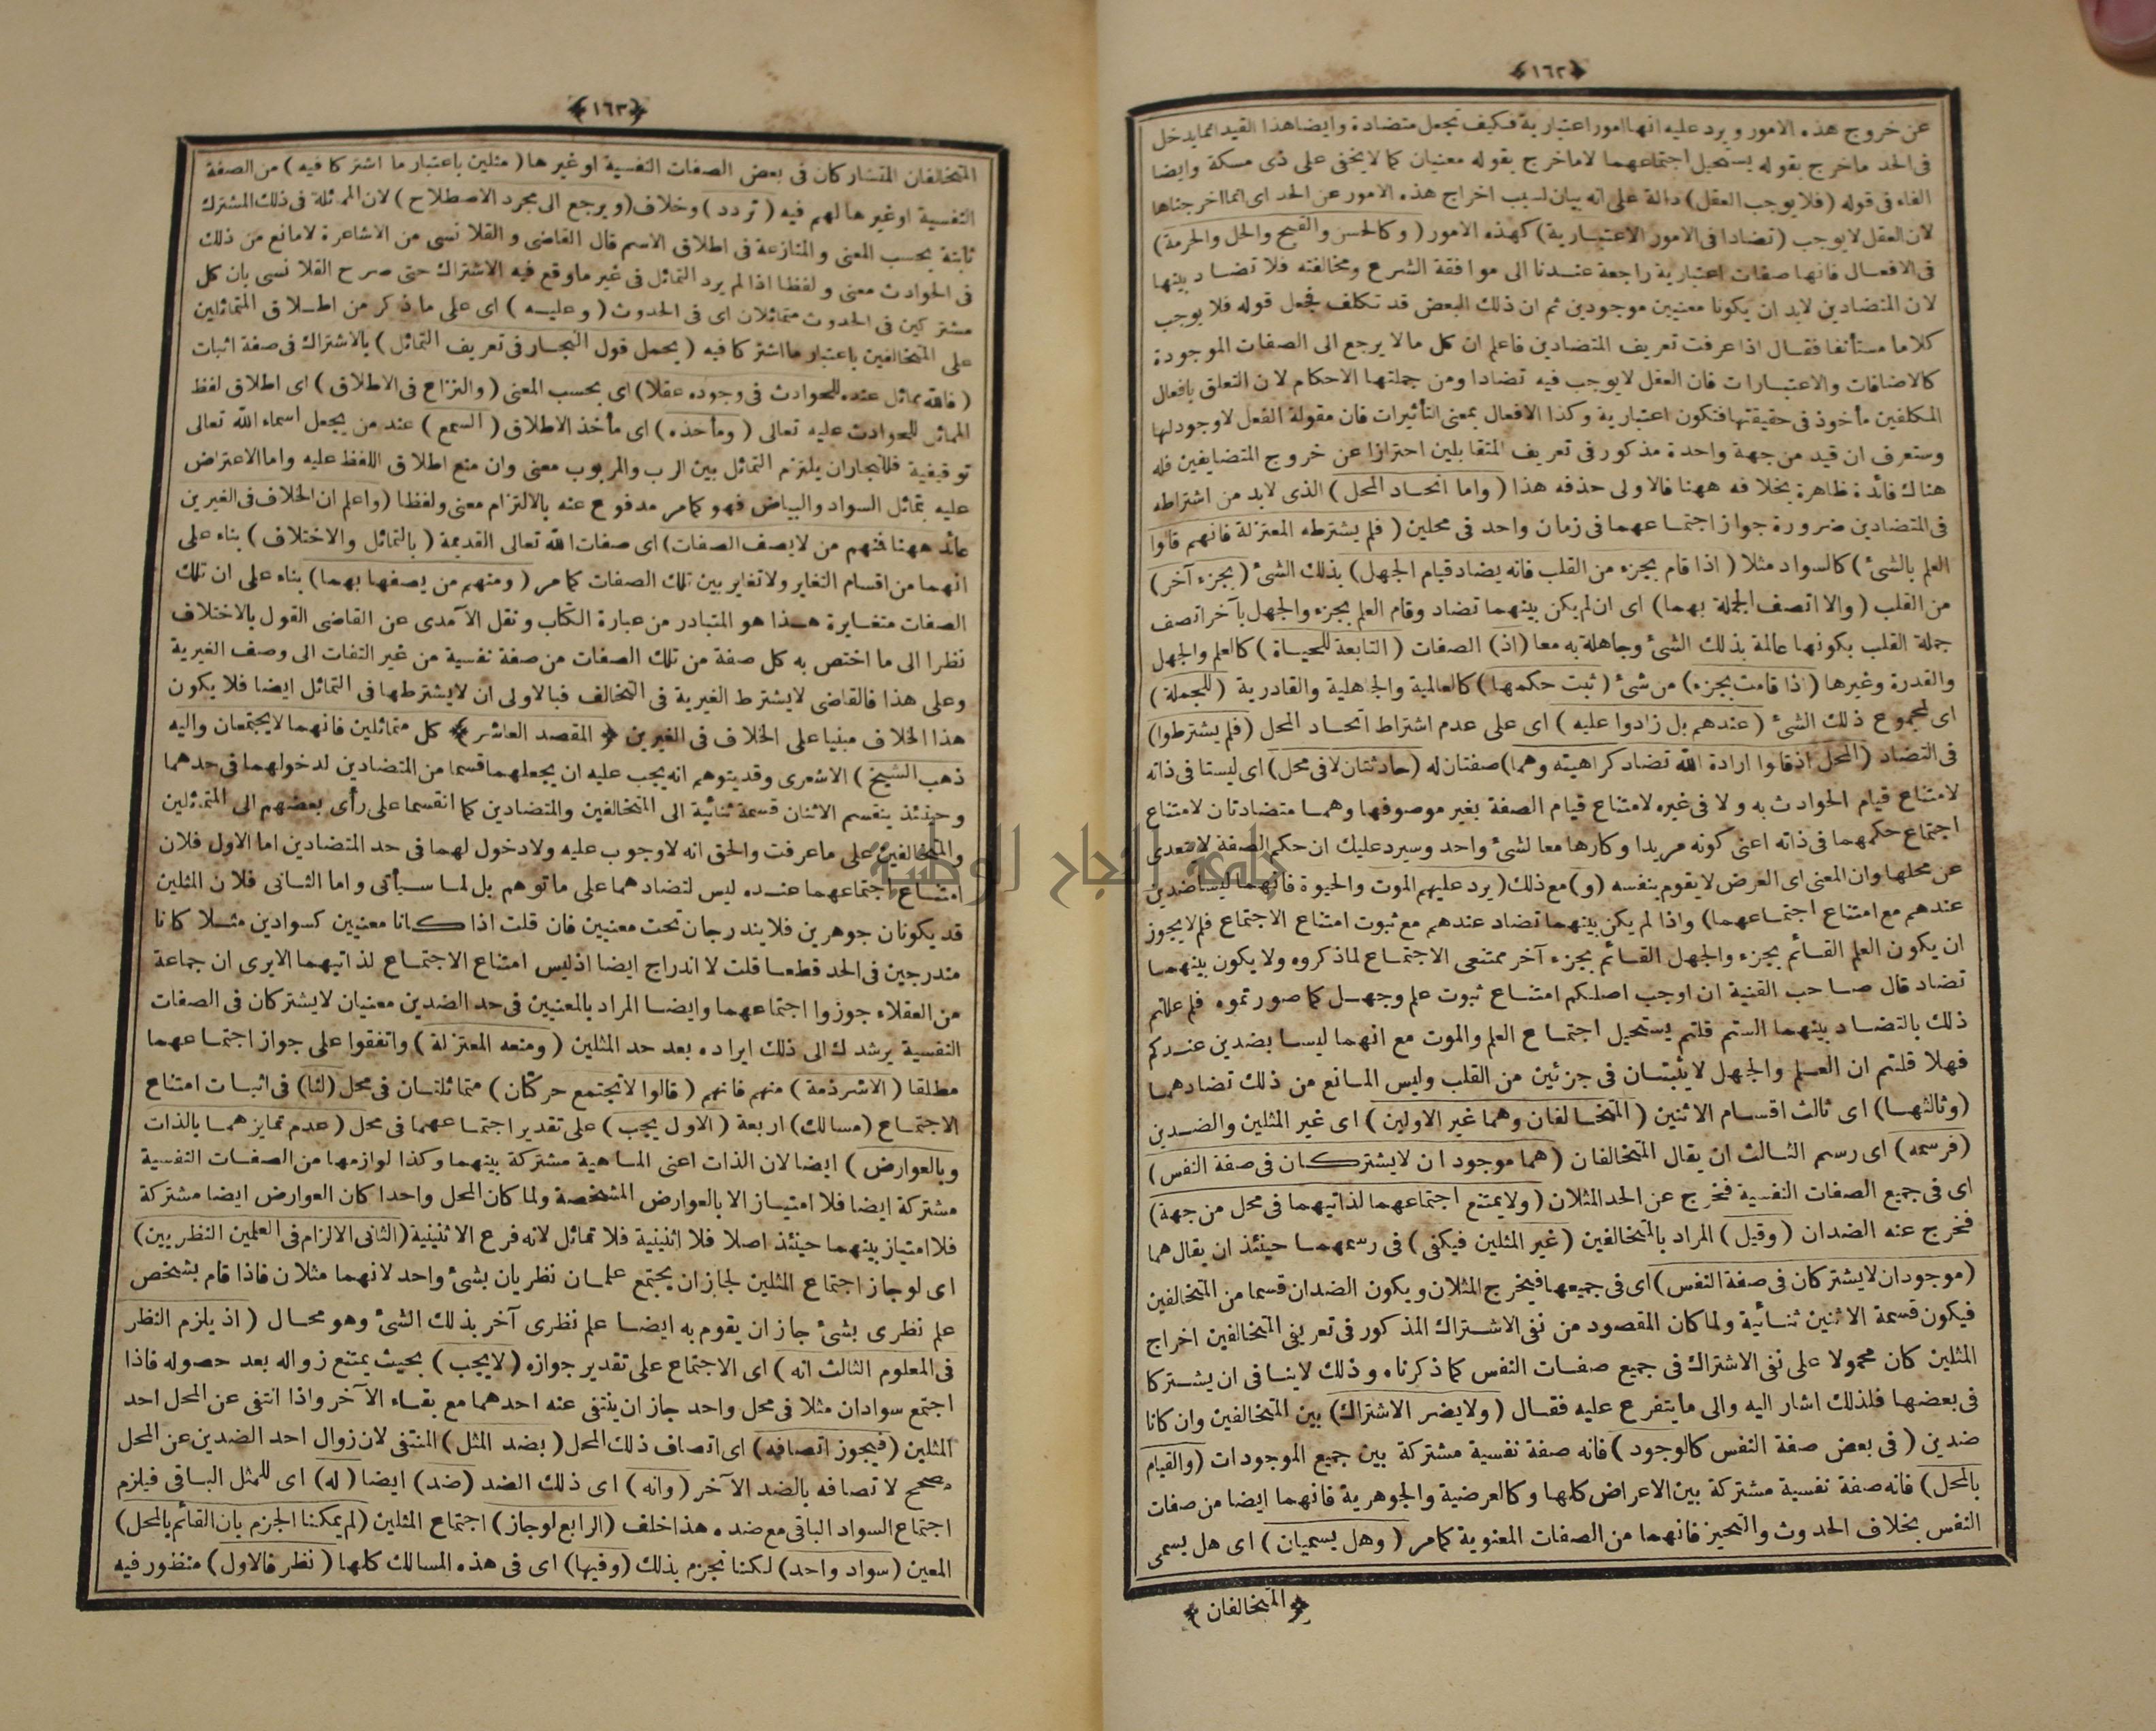 ﴿١٦٢﴾
عن خروج هذه الامور ويرد عليه انها امور اعتبارية فكيف تجعل متضادة وايضا هذا القيد انما يدخل
فى الحد ما خرج بقوله يستحيل اجتماعهما لا ما خرج بقوله معنيان كما لا يخفى على ذى مسكة وايضا
الفاء فى قوله (فلا يوجب العقل) دالة على انه بيان لسبب اخراج هذه الامور عن الحد اى انما اخرجناها
لان العقل لا يوجب (تضادا فى الامور الاعتبارية) كهذه الامور (وكالحسن والقبح والحل والحرمة)
فى الافعال فانها صفات اعتبارية راجعة عندنا الى موافقة الشرع ومخالفته فلا تضاد بينها
لان المتضادين لابد ان يكونا معنيين موجودين ثم ان ذلك البعض قد تكلف فجعل قوله فلا يوجب
كلاما مستأنفا فقال اذا عرفت تعريف المتضادين فاعلم ان كل ما لا يرجع الى الصفات الموجودة
كالاضافات والاعتبارات فان العقل لا يوجب فيه تضادا ومن جملتها الاحكام لان التعلق بافعال
المكلفين مأخوذ فى حقيقتها فتكون اعتبارية وكذا الافعال بمعنى التأثيرات فان مقولة الفعل لا وجود لها
وستعرف ان قيد من جهة واحدة مذكور فى تعريف المتقابلين احترازا عن خروج المتضايفين فله
هناك فائدة ظاهرة بخلافه ههنا فالاولى حذفه هذا (واما اتحاد المحل) الذى لابد من اشتراطه
فى المتضادين ضرورة جواز اجتماعهما فى زمان واحد فى محلين (فلم يشترطه المعتزلة فانهم قالوا
العلم بالشئ) كالسواد مثلا (اذا قام بجزء من القلب فانه يضاد قيام الجهل) بذلك الشئ (بجزء آخر)
من القلب (والا اتصف الجملة بهما) اى ان لم يكن بينهما تضاد وقام العلم بجزء والجهل بآخر اتصف
جملة القلب بكونها عالمة بذلك الشئ وجاهلة به معا (اذ) الصفات (التابعة للحياة) كالعلم والجهل
والقدرة وغيرها (اذا قامت بجزء) من شئ (ثبت حكمها) كالعالمية والجاهلية والقادرية (للجملة)
اى لمجموع ذلك الشئ (عندهم بل زادوا عليه) اى على عدم اشتراط اتحاد المحل (فلم يشترطوا)
فى التضاد (المحل اذ قالوا ارادة الله تضاد كراهيته وهما) صفتان له (حادثتان لا فى محل) اى ليستا فى ذاته
لامتناع قيام الحوادث به ولا فى غيره لامتناع قيام الصفة بغير موصوفها وهما متضادتان لامتناع
اجتماع حكمهما فى ذاته اعنى كونه مريدا وكارها معا لشئ واحد وسيرد عليك ان حكم الصفة لا يتعدى
عن محلها وان المعنى اى العرض لا يقوم بنفسه (و) مع ذلك (يرد عليهم الموت والحيوة فانهما ليسا ضدين
عندهم مع امتناع اجتماعهما) واذا لم يكن بينهما تضاد عندهم مع ثبوت امتناع الاجتماع فلم لا يجوز
ان يكون العلم القائم بجزء والجهل القائم بجزء آخر ممتنعى الاجتماع لما ذكروه ولا يكون بينهما
تضاد قال صاحب القنية ان اوجب اصلكم امتناع ثبوت علم وجهل كما صورتموه فلم عللتم
ذلك بالتضاد بينهما الستم قلتم يستحيل اجتماع العلم والموت مع انهما ليسا بضدين عندكم
فهلا قلتم ان العلم والجهل لا يثبتان فى جزئين من القلب وليس المانع من ذلك تضادهما
(وثالثها) اى ثالث اقسام الاثنين (المتخالفان وهما غير الاولين) اى غير المثلين والضدين
(فرسمه) اى رسم الثالث ان يقال المتخالفان (هما موجودان لا يشتركان فى صفة النفس)
اى فى جميع الصفات النفسية فخرج عن الحد المثلان (ولا يمتنع اجتماعهما لذاتيهما فى محل من جهة)
فخرج عنه الضدان (وقيل) المراد بالمتخالفين (غير المثلين فيكفى) فى رسمهما حينئذ ان يقال هما
(موجودان لا يشتركان فى صفة النفس) اى فى جميعها فيخرج المثلان ويكون الضدان قسما من المتخالفين
فيكون قسمة الاثنين ثنائية ولما كان المقصود من نفى الاشتراك المذكور فى تعريفى المتخالفين اخراج
المثلين كان محمولا على نفى الاشتراك فى جميع صفات النفس كما ذكرناه وذلك لا ينافى ان يشتركا
فى بعضها فلذلك اشار اليه والى ما يتفرع عليه فقال (ولا يضر الاشتراك) بين المتخالفين وان كانا
ضدين (فى بعض صفة النفس كالوجود) فانه صفة نفسية مشتركة بين جميع الموجودات (والقيام
بالمحل) فانه صفة نفسية مشتركة بين الاعراض كلها وكالعرضية والجوهرية فانهما ايضا من صفات
النفس بخلاف الحدوث والتحيز فانهما من الصفات المعنوية كما مر (وهل يسميان) اى هل يسمى
﴿المتخالفان﴾
﴿١٦٣﴾
المتخالفان المتشاركان فى بعض الصفات النفسية او غيرها (مثلين باعتبار ما اشتركا فيه) من الصفة
النفسية او غيرها لهم فيه (تردد) وخلاف (ويرجع الى مجرد الاصطلاح) لان المماثلة فى ذلك المشترك
ثابتة بحسب المعنى والمنازعة فى اطلاق الاسم قال القاضى والقلانسى من الاشاعرة لا مانع من ذلك
فى الحوادث معنى ولفظا اذا لم يرد التماثل فى غير ما وقع فيه الاشتراك حتى صرح القلانسى بان كل
مشتركين فى الحدوث متماثلان اى فى الحدوث (وعليه) اى على ما ذكر من اطلاق المتماثلين
على المتخالفين باعتبار ما اشتركا فيه (يحمل قول النجار فى تعريف التماثل) بالاشتراك فى صفة اثبات
(فالله مماثل عنده للحوادث فى وجوده عقلا) اى بحسب المعنى (والنزاع فى الاطلاق) اى اطلاق لفظ
المماثل للحوادث عليه تعالى (ومأخذه) اى مأخذ الاطلاق (السمع) عند من يجعل اسماء الله تعالى
توقيفية فللنجار ان يلتزم التماثل بين الرب والمربوب معنى وان منع اطلاق اللفظ عليه واما الاعتراض
عليه بتماثل السواد والبياض فهو كما مر مدفوع عنه بالالتزام معنى ولفظا (واعلم ان الخلاف فى الغيرين
عائد ههنا فمنهم من لا يصف الصفات) اى صفات الله تعالى القديمة (بالتماثل والاختلاف) بناء على
انهما من اقسام التغاير ولا تغاير بين تلك الصفات كما مر (ومنهم من يصفها بهما) بناء على ان تلك
الصفات متغايرة هذا هو المتبادر من عبارة الكتاب ونقل الآمدى عن القاضى القول بالاختلاف
نظرا الى ما اختص به كل صفة من تلك الصفات من صفة نفسية من غير التفات الى وصف الغيرية
وعلى هذا فالقاضى لا يشترط الغيرية فى التخالف فبالاولى ان لا يشترطها فى التماثل ايضا فلا يكون
هذا الخلاف مبنيا على الخلاف فى الغيرين ﴿المقصد العاشر﴾ كل متماثلين فانهما لا يجتمعان واليه
ذهب الشيخ) الاشعرى وقد يتوهم انه يجب عليه ان يجعلهما قسما من المتضادين لدخولهما فى حدهما
وحينئذ ينقسم الاثنان قسمة ثنائية الى المتخالفين والمتضادين كما انقسما على رأى بعضهم الى المتماثلين
والمتخالفين على ما عرفت والحق انه لا وجوب عليه ولا دخول لهما فى حد المتضادين اما الاول فلان
امتناع اجتماعهما عنده ليس لتضادهما على ما توهم بل لما سيأتى واما الثانى فلان المثلين
قد يكونان جوهرين فلا يندرجان تحت معنيين فان قلت اذا كانا معنيين كسوادين مثلا كانا
مندرجين فى الحد قطعا قلت لا اندراج ايضا اذ ليس امتناع الاجتماع لذاتيهما الا يرى ان جماعة
من العقلاء جوزوا اجتماعهما وايضا المراد بالمعنيين فى حد الضدين معنيان لا يشتركان فى الصفات
النفسية يرشدك الى ذلك ايراده بعد حد المثلين (ومنعه المعتزلة) واتفقوا على جواز اجتماعهما
مطلقا (الا شرذمة) منهم فانهم (قالوا لا تجتمع حركتان) متماثلتان فى محل (لنا) فى اثبات امتناع
الاجتماع (مسالك) اربعة (الاول يجب) على تقدير اجتماعهما فى محل (عدم تمايزهما بالذات
وبالعوارض) ايضا لان الذات اعنى الماهية مشتركة بينهما وكذا لوازمها من الصفات النفسية
مشتركة ايضا فلا امتياز الا بالعوارض المشخصة ولما كان المحل واحدا كان العوارض ايضا مشتركة
فلا امتياز بينهما حينئذ اصلا فلا اثنينية فلا تماثل لانه فرع الاثنينية (الثانى الالزام فى العلمين النظريين)
اى لو جاز اجتماع المثلين لجاز ان يجتمع علمان نظريان بشئ واحد لانهما مثلان فاذا قام بشخص
علم نظرى بشئ جاز ان يقوم به ايضا علم نظرى آخر بذلك الشئ وهو محال (اذ يلزم النظر
فى المعلوم الثالث انه) اى الاجتماع على تقدير جوازه (لا يجب) بحيث يمتنع زواله بعد حصوله فاذا
اجتمع سوادان مثلا فى محل واحد جاز ان ينتفى عنه احدهما مع بقاء الآخر واذا انتفى عن المحل احد
المثلين (فيجوز اتصافه) اى اتصاف ذلك المحل (بضد المثل) المنتفى لان زوال احد الضدين عن المحل
مصحح لاتصافه بالضد الآخر (وانه) اى ذلك الضد (ضد) ايضا (له) اى للمثل الباقى فيلزم
اجتماع السواد الباقى مع ضده هذا خلف (الرابع لو جاز) اجتماع المثلين (لم يمكننا الجزم بان القائم بالمحل)
المعين (سواد واحد) لكنا نجزم بذلك (وفيها) اى فى هذه المسالك كلها (نظر فالاول) منظور فيه
جامعة النجاح الوطنية